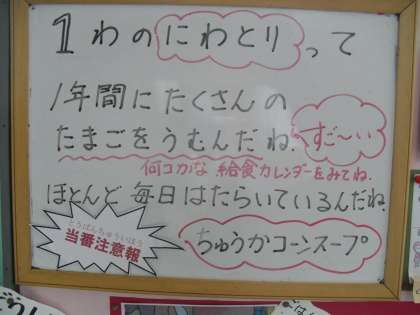 1わのにわとりって
1年間にたくさんの
たまごをうむんだね。
すご〜い
何コかな 給食カレンダーをみてね。
ほとんど毎日はたらいているんだね。
とうばんちゅういほう
当番注意報
ちゅうかコーンスープ